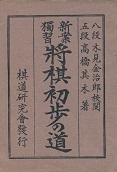 八段 木見金治郎 校閲
五段 高橋其木 著
新案
獨習
將棋初歩の道
棋道研究會發行